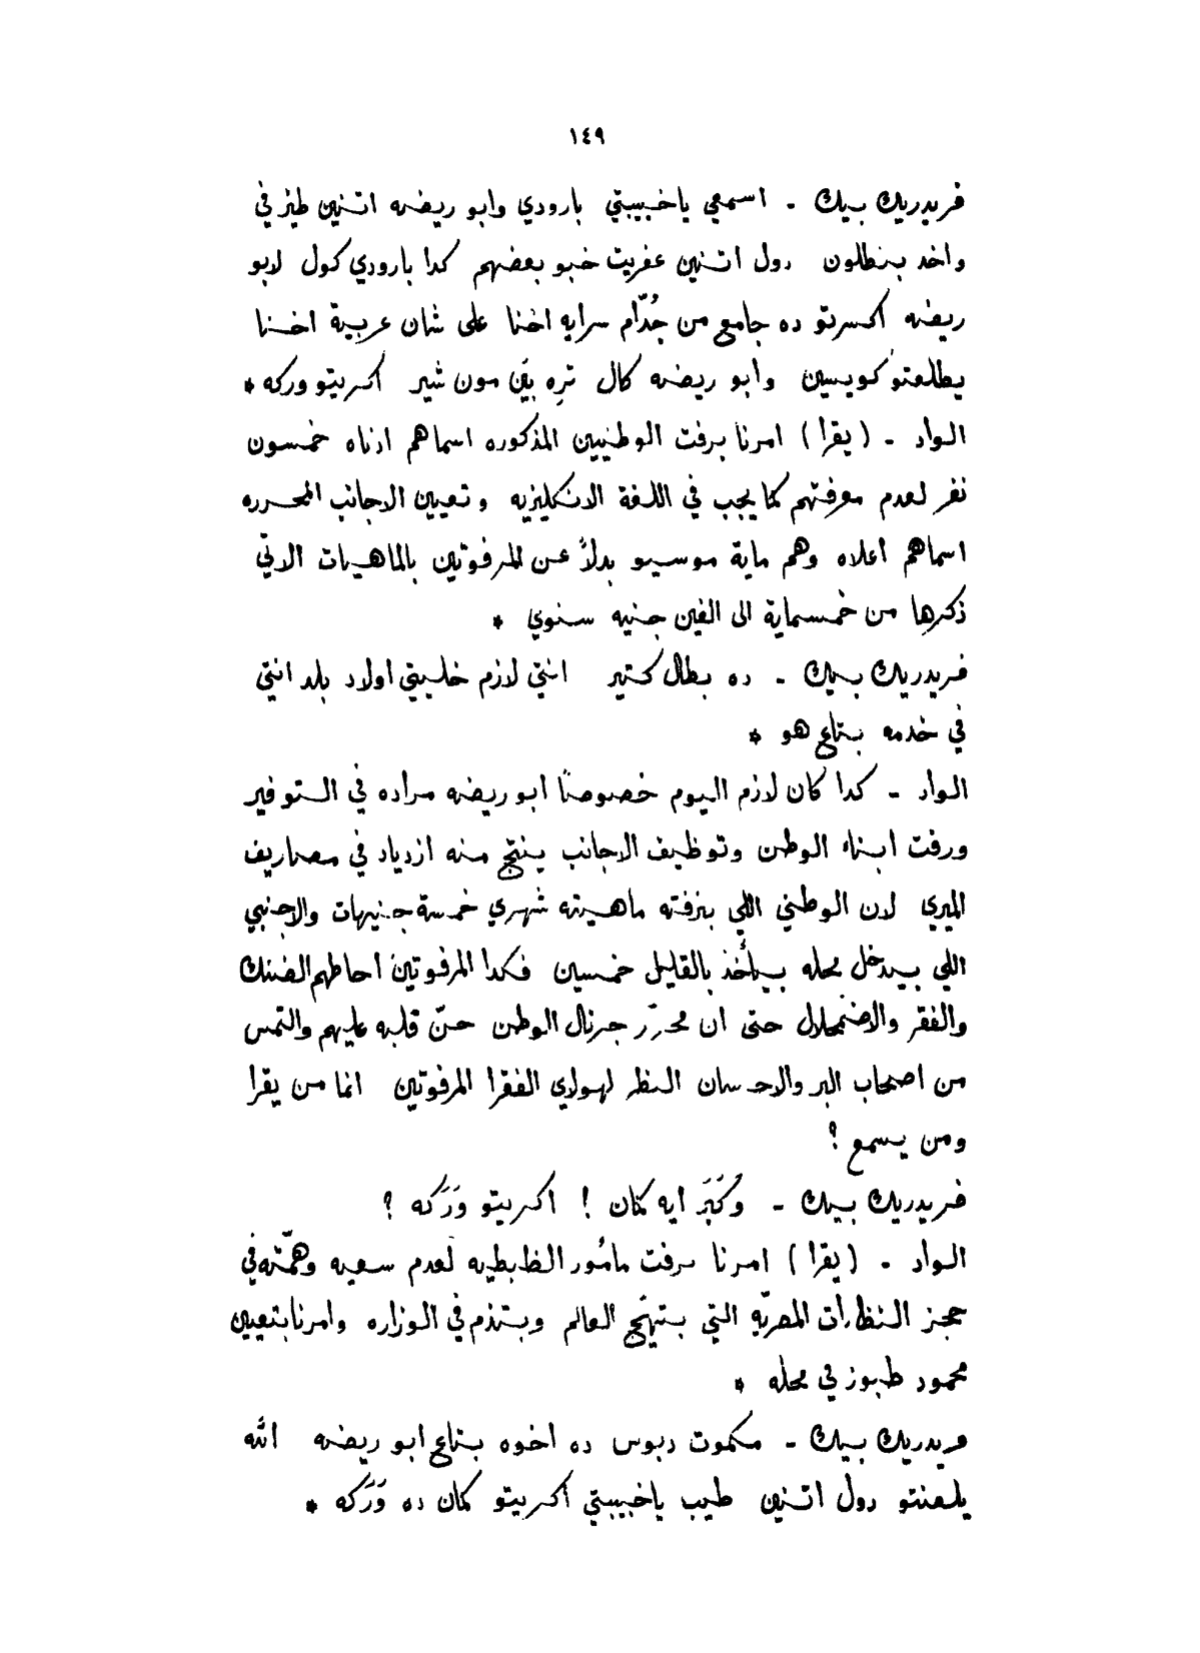 ١٤٩
فريدريك بيك - اسمعي ياخبيبتي بارودي وابو ريضه اتنين طيز في
واخد بنطلون دول اتنين عفريت خبو بعضهم كدا بارودي كول لابو
ريضه اكسرتو ده جامع من جُدّام سرايه اخنا على شان عربية اخنا
يطلعتو كويسين وابو ريضه كال تره بيّن مون شير اكريتو وركه *
الواد - (يقرا) امرنا برفت الوطنيين المذكوره اسماهم ادناه خمسون
نفر لعدم معرفتهم كما يجب في اللغة الانكليزيه وتعيين الاجانب المحرره
اسماهم اعلاه وهم ماية موسيو بدلاً عن المرفوتين بالماهيات الاتي
ذكرها من خمسماية الى الفين جنيه سنوي *
فريدريك بيك - ده بطال كتير انتي لازم خليتي اولاد بلد انتي
في خدمه بتاع هو *
الواد - كدا كان لازم اليوم خصوصاً ابو ريضه مراده في التوفير
ورفت ابناء الوطن وتوظيف الاجانب ينتج منه ازدياد في مصاريف
الميري لان الوطني اللي بنرفته ماهيته شهري خمسة جنيهات والاجنبي
اللي بيدخل محله بيأخذ بالقليل خمسين فكدا المرفوتين احاطهم الضنك
والفقر والاضمحلال حتى ان محرّر جرنال الوطن حنّ قلبه عليهم والتمس
من اصحاب البر والاحسان النظر لهولاي الفقرا المرفوتين انما من يقرا
ومن يسمع ؟
فريدريك بيك - وَكَبَر ايه كمان ! اكريتو وَرَكه ؟
الواد - (يقرا) امرنا برفت مأمور الظابطيه لعدم سعيه وهمّته في
حجز النظارات المصريّه التي بتهيّج العالم وبتذم في الوزاره وامرنا بتعيين
محمود طبوز في محله *
فريدريك بيك - مكموت دبوس ده اخوه بتاع ابو ريضه الله
يلعنتو دول اتنين طيب ياخبيبتي اكريتو كمان ده وَرَكه *